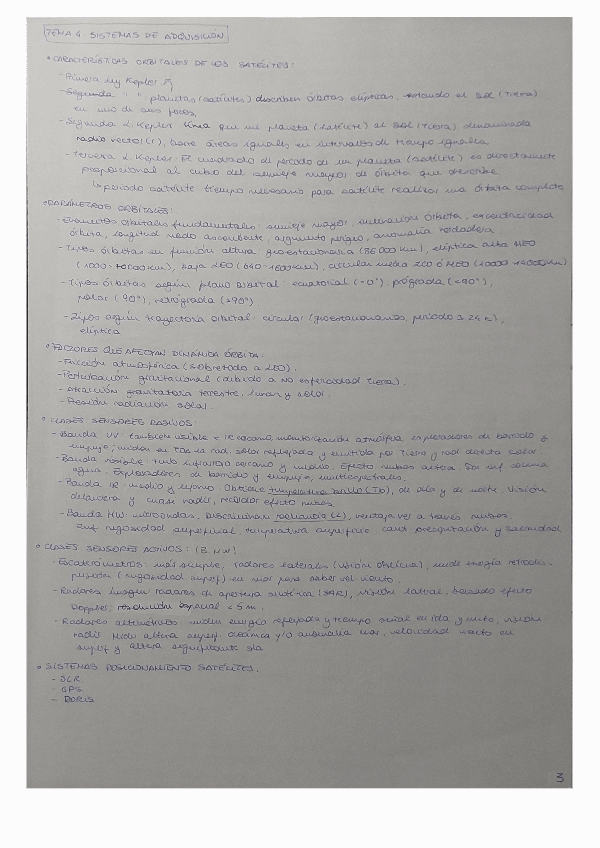 TEMA 4 SISTEMAS DE ADQUISICIÓN
• CARACTERÍSTICAS ORBITALES DE LOS SATÉLITES:
- Primera ley Kepler
- Segunda " " planetas (satélites) describen órbitas elípticas, estando el Sol (Tierra)
en uno de sus focos.
- Segunda L. Kepler línea que une planeta (satélite) al Sol (Tierra) denominada
radio vector (r), barre áreas iguales en intervalos de tiempo iguales.
- Tercera L. Kepler: El cuadrado de periodo de un planeta (satélite) es directamente
proporcional al cubo del semieje mayor de órbita que describe
↳ periodo satélite tiempo necesario para satélite realizar una órbita completa
• PARÁMETROS ORBITALES:
- Elementos orbitales fundamentales: semieje mayor, inclinación órbita, excentricidad
órbita, longitud nodo ascendente, argumento perigeo, anomalía verdadera
- Tipos órbitas en función altura: geoestacionaria (36000 km), elíptica alta HEO
baja LEO circular media ICO ó MEO
- Tipos órbitas según plano orbital: ecuatorial (~0°), prógrada (<90°),
polar (90°), retrógrada (>90°)
- Tipos según trayectoria orbital: circular (geoestacionarios, periodo 24 h),
elíptica
• FACTORES QUE AFECTAN DINÁMICA ÓRBITA:
- Fricción atmosférica (sobretodo a LEO).
- Perturbación gravitacional (debido a no esfericidad Tierra).
- Atracción gravitatoria terrestre, lunar y solar.
- Presión radiación solar.
• CLASES SENSORES PASIVOS:
- Banda UV: también visible e IR cercano, monitorización atmósfera, exploradores de barrido y
empuje, miden en rad. solar reflejada y emitida por Tierra y rad directa solar
- Banda visible: infrarrojo cercano y medio. Efecto nubes
agua. Exploradores de barrido y empuje, multiespectrales.
- Banda IR: medio y lejano. Obtiene temperatura brillo (Tb), de día y de noche. Visión
delantera y cuasi nadir, efecto nubes.
- Banda MW: microondas, radiancia (L), ventaja ver a través nubes.
rugosidad superficial, temperatura superficie, cant precipitación y salinidad
• CLASES SENSORES ACTIVOS: (B. MW)
- Escaterómetros: más simple, radares laterales (visión oblicua), mide energía
(rugosidad superf) en mar para saber vel viento.
- Radares imagen radares de apertura sintética (SAR), visión lateral, basado efecto
Doppler, resolución espacial < 5m.
- Radares altimétricos miden energía reflejada y tiempo señal en ida y vuelta, visión
nadir. Mide altura superf. oceánica y/o anomalía mar, velocidad viento en
superf y altura significante ola
• SISTEMAS POSICIONAMIENTO SATÉLITES.
- SLR
- GPS
- DORIS
3